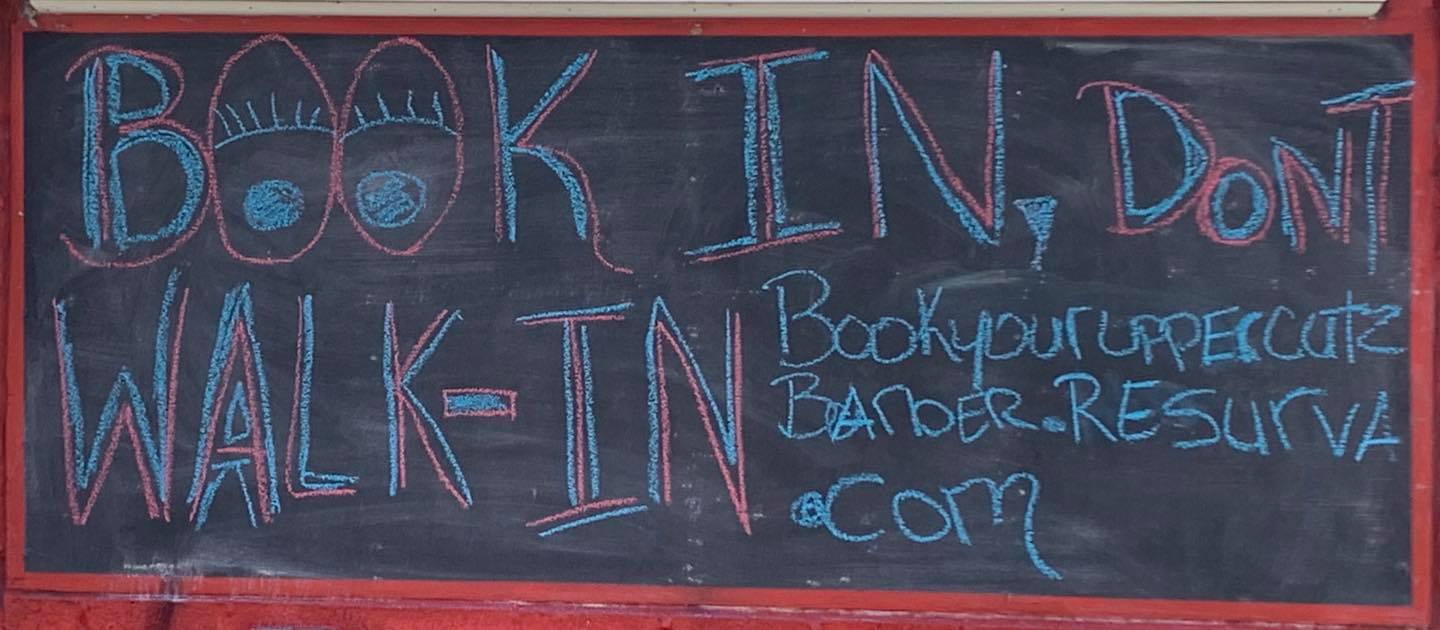 BOOK IN, DONT
WALK-IN
BookyourUPPERcutz
BArbER.RESurvA
.com